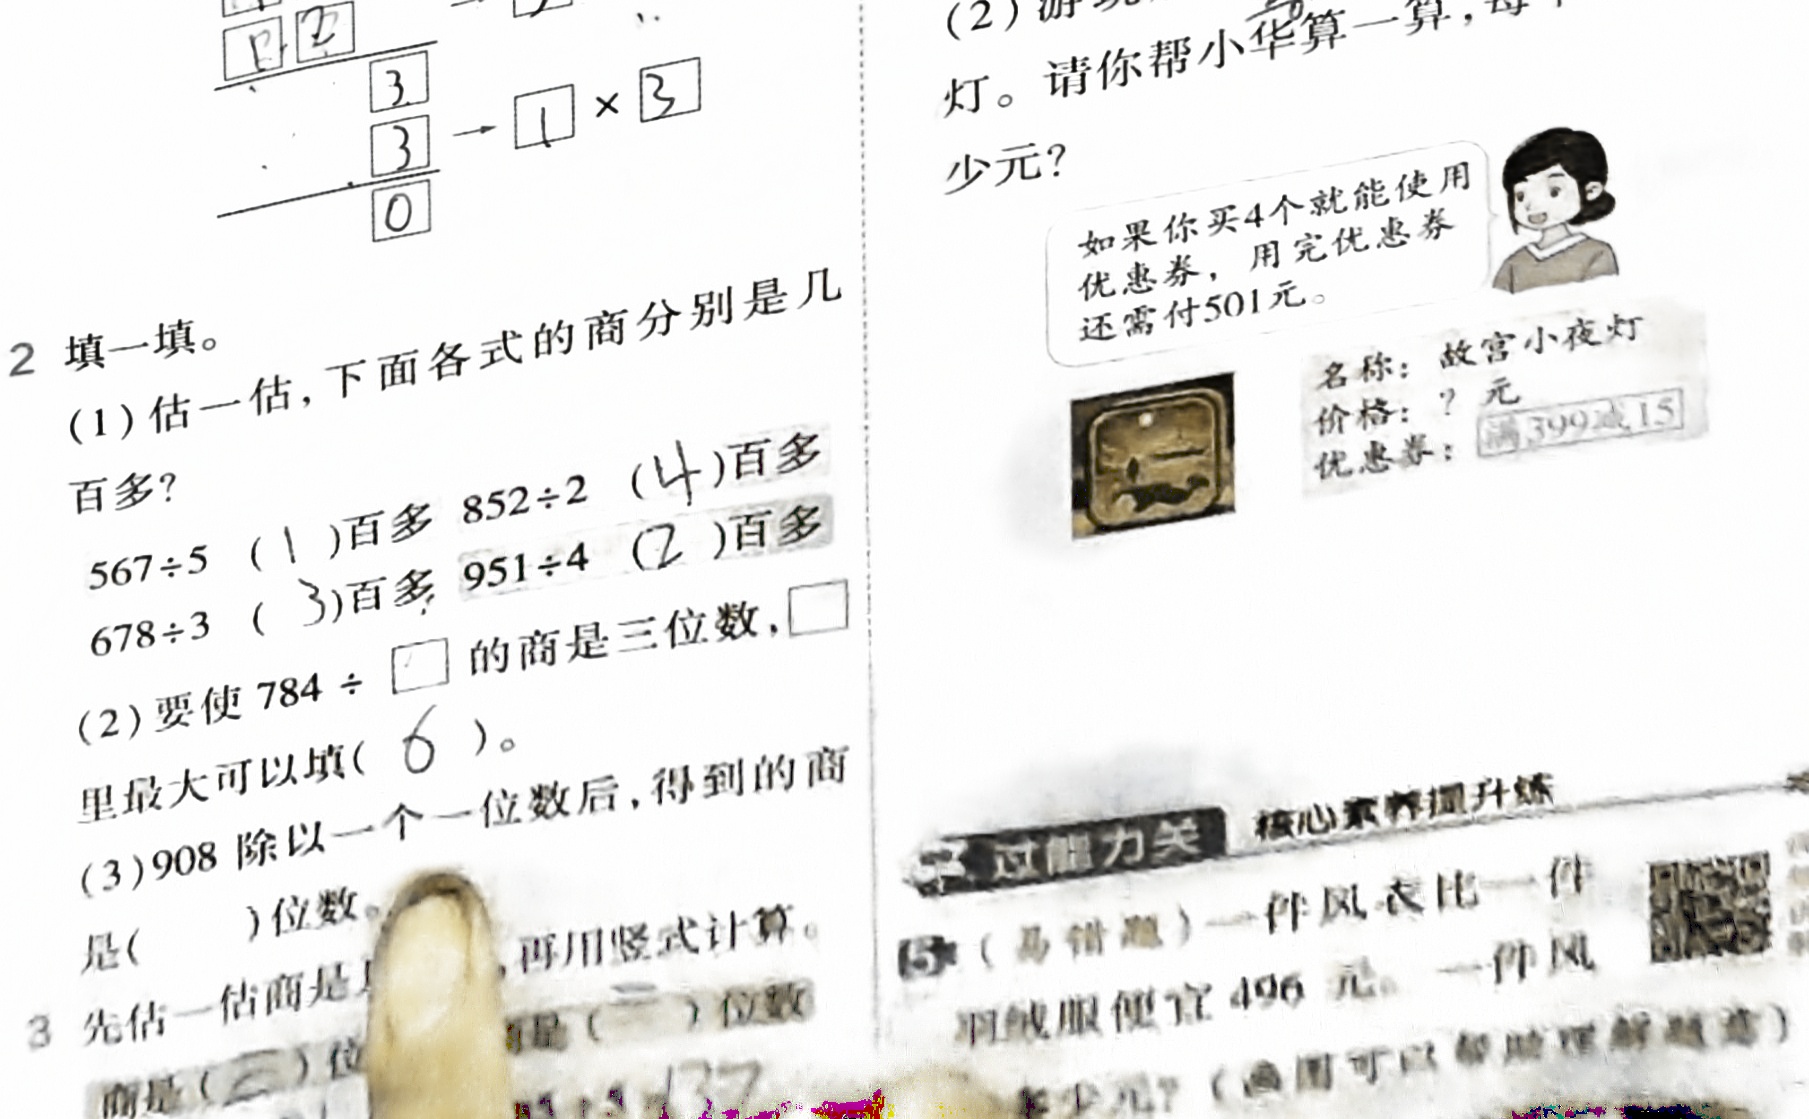 1 2
3
3 → 1 × 3
0
2 填一填。
(1)估一估,下面各式的商分别是几
百多?
567÷5 (1)百多 852÷2 (4)百多
678÷3 (3)百多 951÷4 (2)百多
(2)要使784÷□的商是三位数,□
里最大可以填(6)。
(3)908除以一个一位数后,得到的商
是( )位数。
3 先估一估商是 ,再用竖式计算。
商是(三)位 是( )位数
137
(2)
灯。请你帮小华算一算,每
少元?
如果你买4个就能使用
优惠券,用完优惠券
还需付501元。
名称:故宫小夜灯
价格:?元
优惠券:满399减15
过能力关 核心素养提升练
5 (易错题)一件风衣比一件
羽绒服便宜496元。一件风
多少元?(画图可以帮助理解题意)